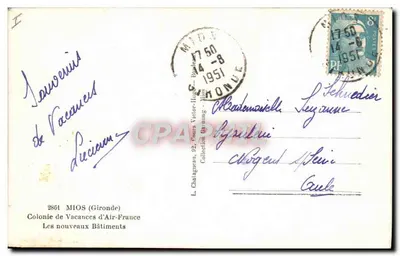 I
MIOS
17 50
14 - 8
1951
GIRONDE
8F
MIOS
17 50
14 - 8
1951
GIRONDE
Souvenirs
de Vacances
Lucienne
Mademoiselle Suzanne
Schneider
Nogent s/Seine
Aube
CPARAMA
L. Chatagneau, 92, Cours Victor-Hugo
Collection
2861 MIOS (Gironde)
Colonie de Vacances d'Air-France
Les nouveaux Bâtiments